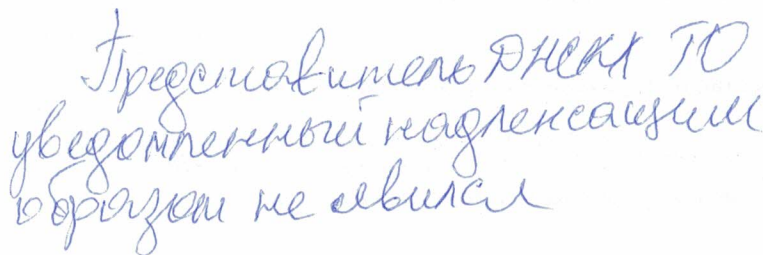 Представитель ДНСКЛ ТО
уведомленный надлежащим
образом не явился